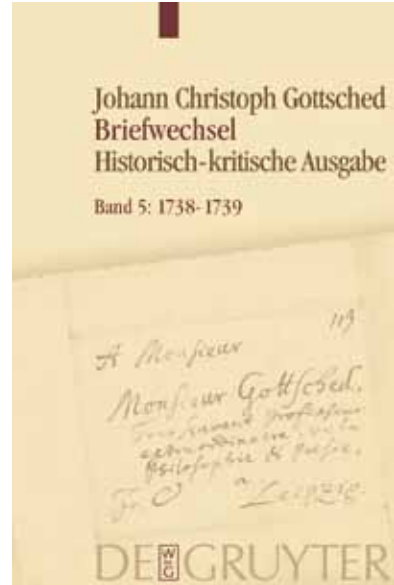 Johann Christoph Gottsched
Briefwechsel
Historisch-kritische Ausgabe
Band 5: 1738-1739
113
A Monsieur
Monsieur Gottsched.
professeur
extraordinaire
Philosophie & Poesie.
à
Leipzig.
DE GRUYTER